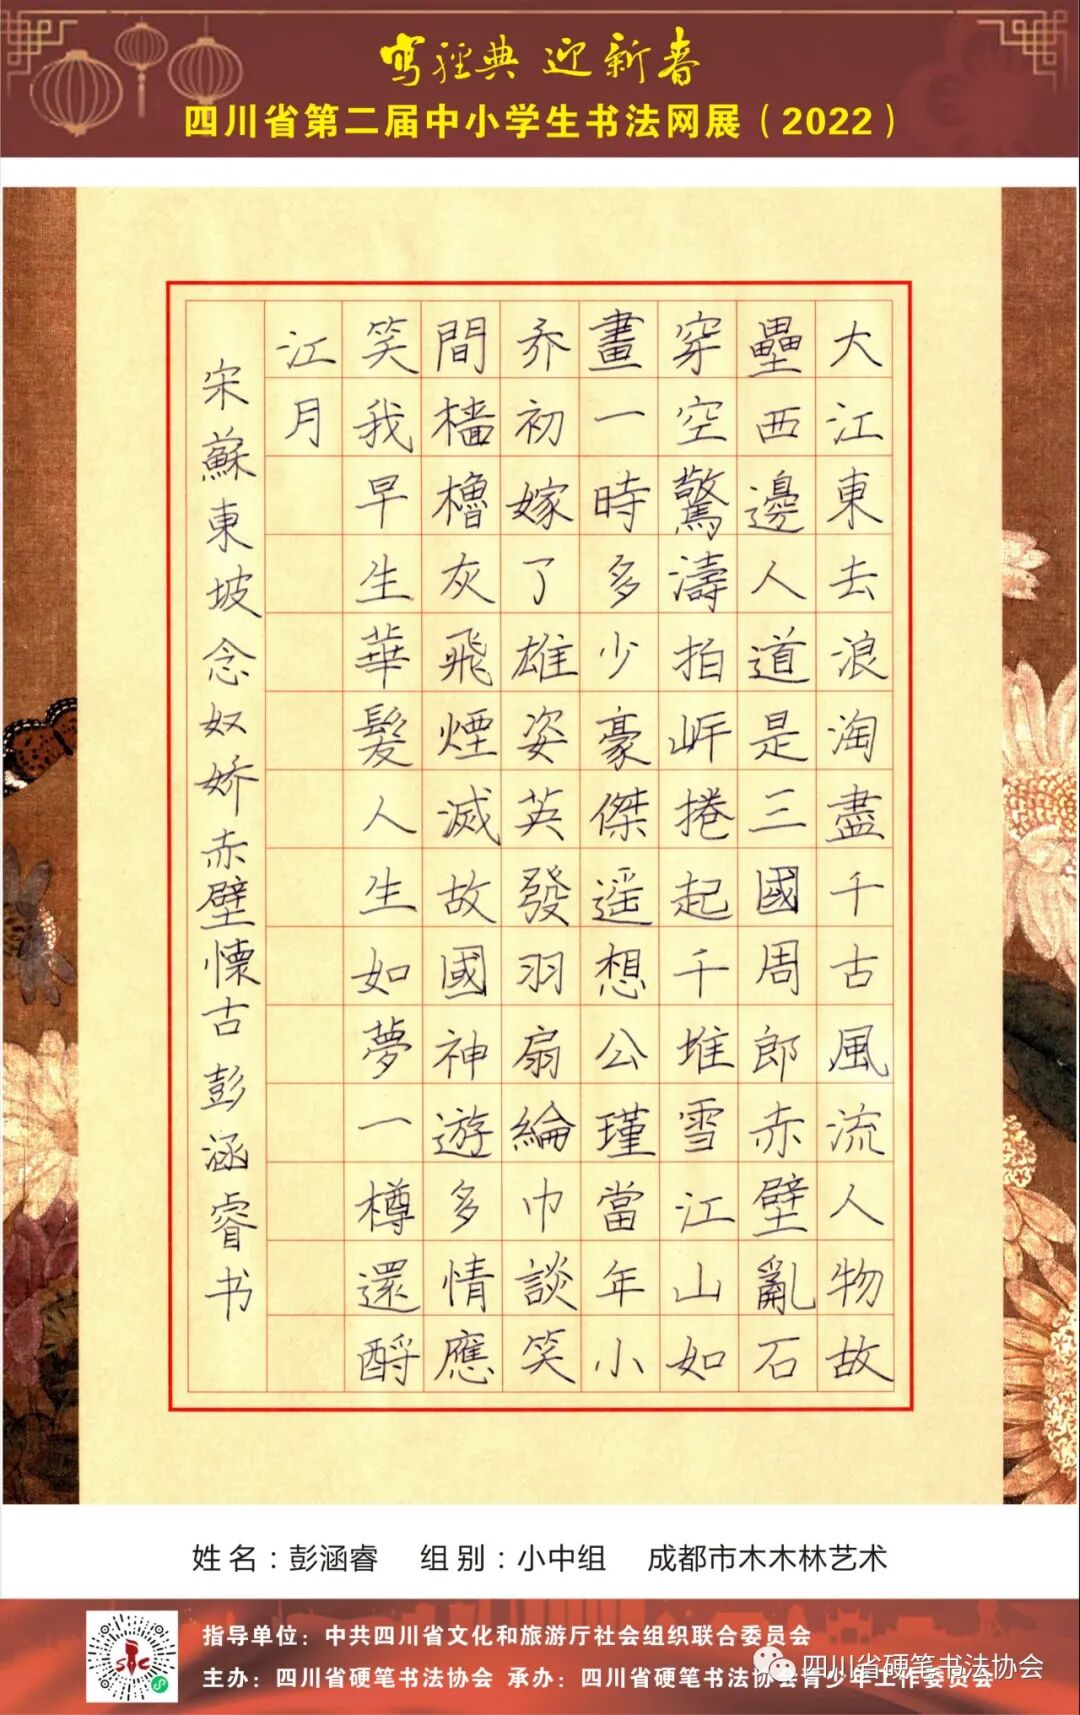 寫經典 迎新春
四川省第二届中小学生书法网展（2022）
大江東去浪淘盡千古風流人物故
壘西邊人道是三國周郎赤壁亂石
穿空驚濤拍岸捲起千堆雪江山如
畫一時多少豪傑遥想公瑾當年小
乔初嫁了雄姿英發羽扇綸巾談笑
間檣櫓灰飛煙滅故國神遊多情應
笑我早生華髮人生如夢一樽還酹
江月
宋蘇東坡念奴娇赤壁懷古彭涵睿书
姓名：彭涵睿 组别：小中组 成都市木木林艺术
指导单位：中共四川省文化和旅游厅社会组织联合委员会
主办：四川省硬笔书法协会 承办：四川省硬笔书法协会青少年工作委员会
四川省硬笔书法协会